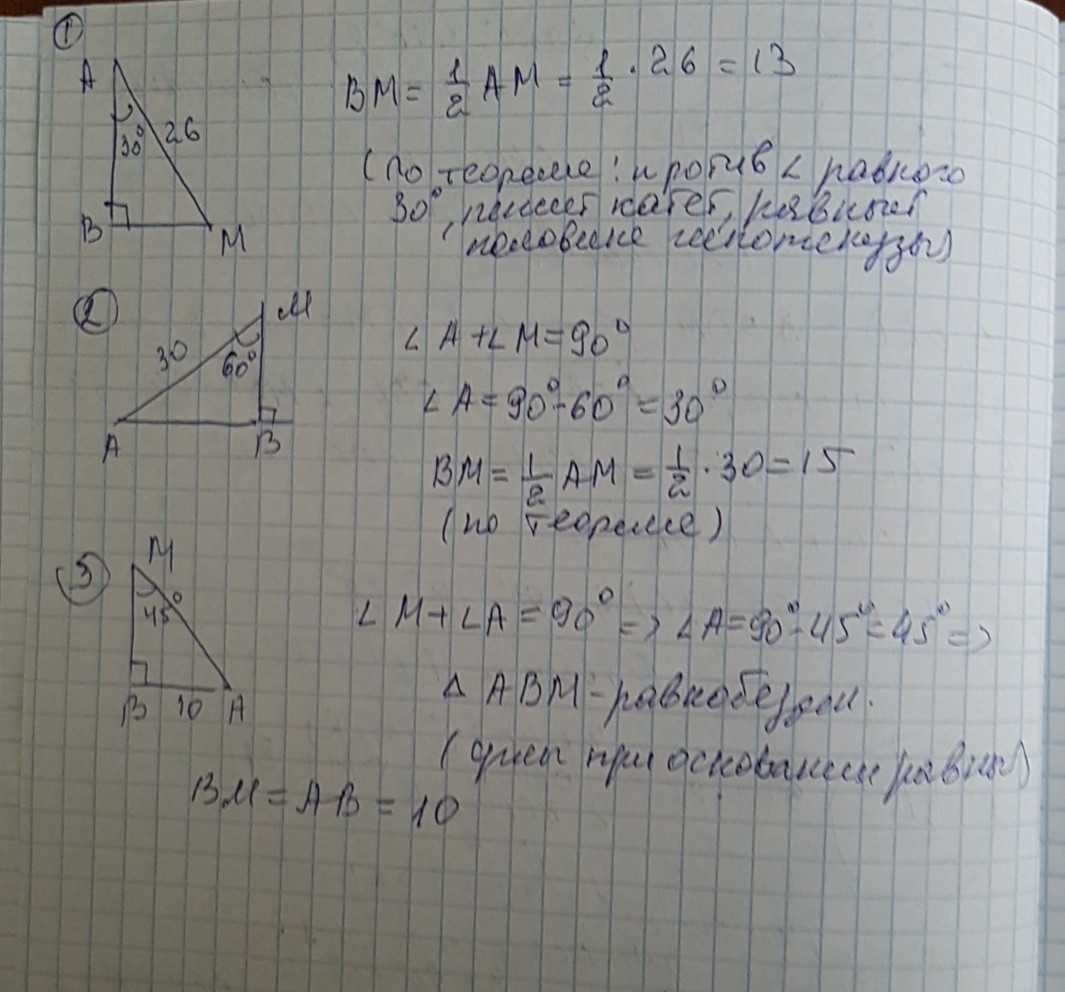 1
A
30°
26
B
M
BM = 1/2 AM = 1/2 · 26 = 13
(по теореме: против ∠ равного
30°, лежит катет, равный
половине гипотенузы)
2
M
30
60°
A
B
∠A + ∠M = 90°
∠A = 90° - 60° = 30°
BM = 1/2 AM = 1/2 · 30 = 15
(по теореме)
3
M
45°
B 10 A
∠M + ∠A = 90° => ∠A = 90° - 45° = 45° =>
Δ ABM - равнобедрен.
(углы при основании равны)
BM = AB = 10